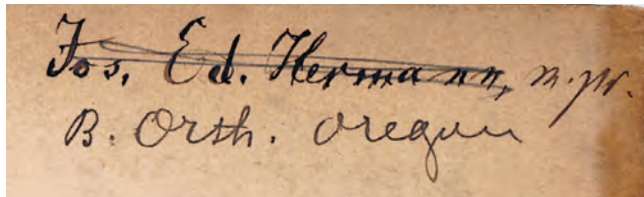 Jos. Ed. Hermann,
B. Orth. Oregon